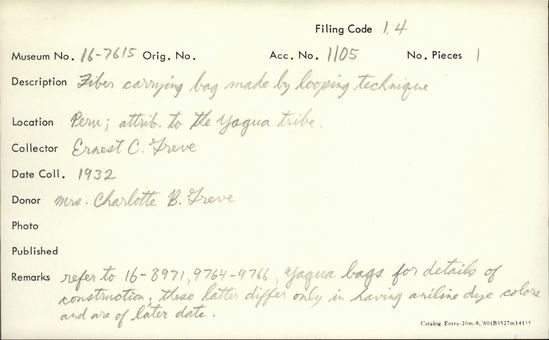 Filing Code 1.4
Museum No. 16-7615 Orig. No. Acc. No. 1105 No. Pieces 1
Description Fiber carrying bag made by looping technique
Location Peru; attrib. to the Yagua tribe.
Collector Ernest C. Greve
Date Coll. 1932
Donor Mrs. Charlotte B. Greve
Photo
Published
Remarks refer to 16-8971, 9764-9766, Yagua bags for details of
construction; these latter differ only in having aniline dye colors
and are of later date.
Catalog Entry-20m-8,'60(B3527m)4135